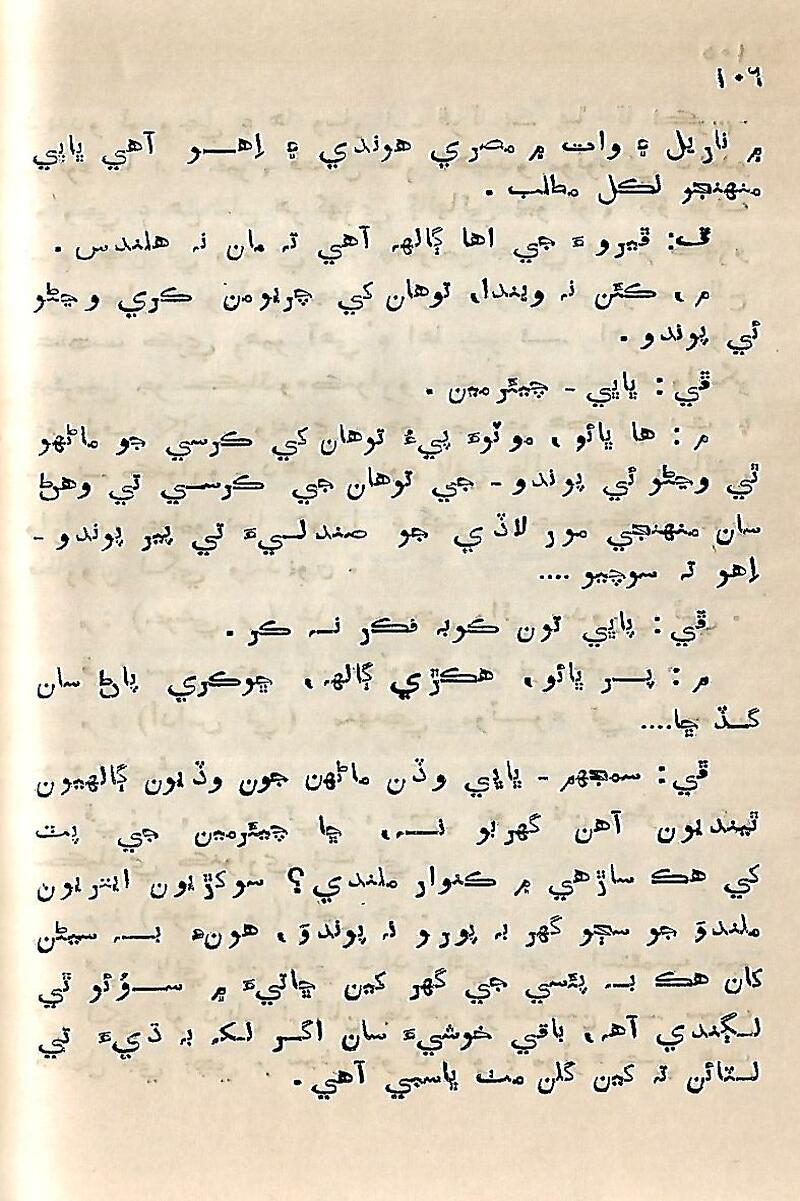 ١٠٦
۾ ناريل ۽ وات ۾ مصري هوندي ۽ اِهــو آهي ڀاڀي
منهنجو لڪل مطلب .
ف: ڦيرو ۽ جي اها ڳالهه آهي ته مان نه هلندس .
م، ڪٿن نه ويندا، توهان کي چريومن ڪري وڃڻو
ئي پوندو .
ڦي: ڀاڀي - چيئرمين .
م: ها ڀائو، موٽوءَ پيءُ توهان کي ڪرسي جو ماڻهو
ٿي وڃڻو ئي پوندو - جي توهان جي ڪرســي تي وهڻ
سان منهنجي مور لاڏي جو صندلــيءَ تي پير پوندو -
اِهو ته سوچيو ....
ڦي: ڀاڀي تون ڪوبه فڪر نــه ڪر .
م: پــر ڀائو، هڪڙي ڳالهه، ڇوڪري پاڻ سان
گــڏ ڇا....
ڦي: سمجهه - ڀاڀي وڏن ماڻهن جون وڏيون ڳالهيون
ٿينديون آهن گهربو نــه، ڇا چيئرمين جي پٽ
کي هڪ ساڙهي ۾ ڪنوار ملندي؟ سوکڙيون ايتريون
ملندوَ جو سڄو گهر به پورو نه پوندوَ، هونءَ بــه سيٺن
کان هڪ بــه پئسي جي گهر کين ڇاتيءَ ۾ ســوُئو ٿي
لــڳندي آهه، باقي خوشيءَ سان اگــر لــک به ڏيءَ تي
لــٽائن ته کين گلن مٽ ڀاسبي آهي.